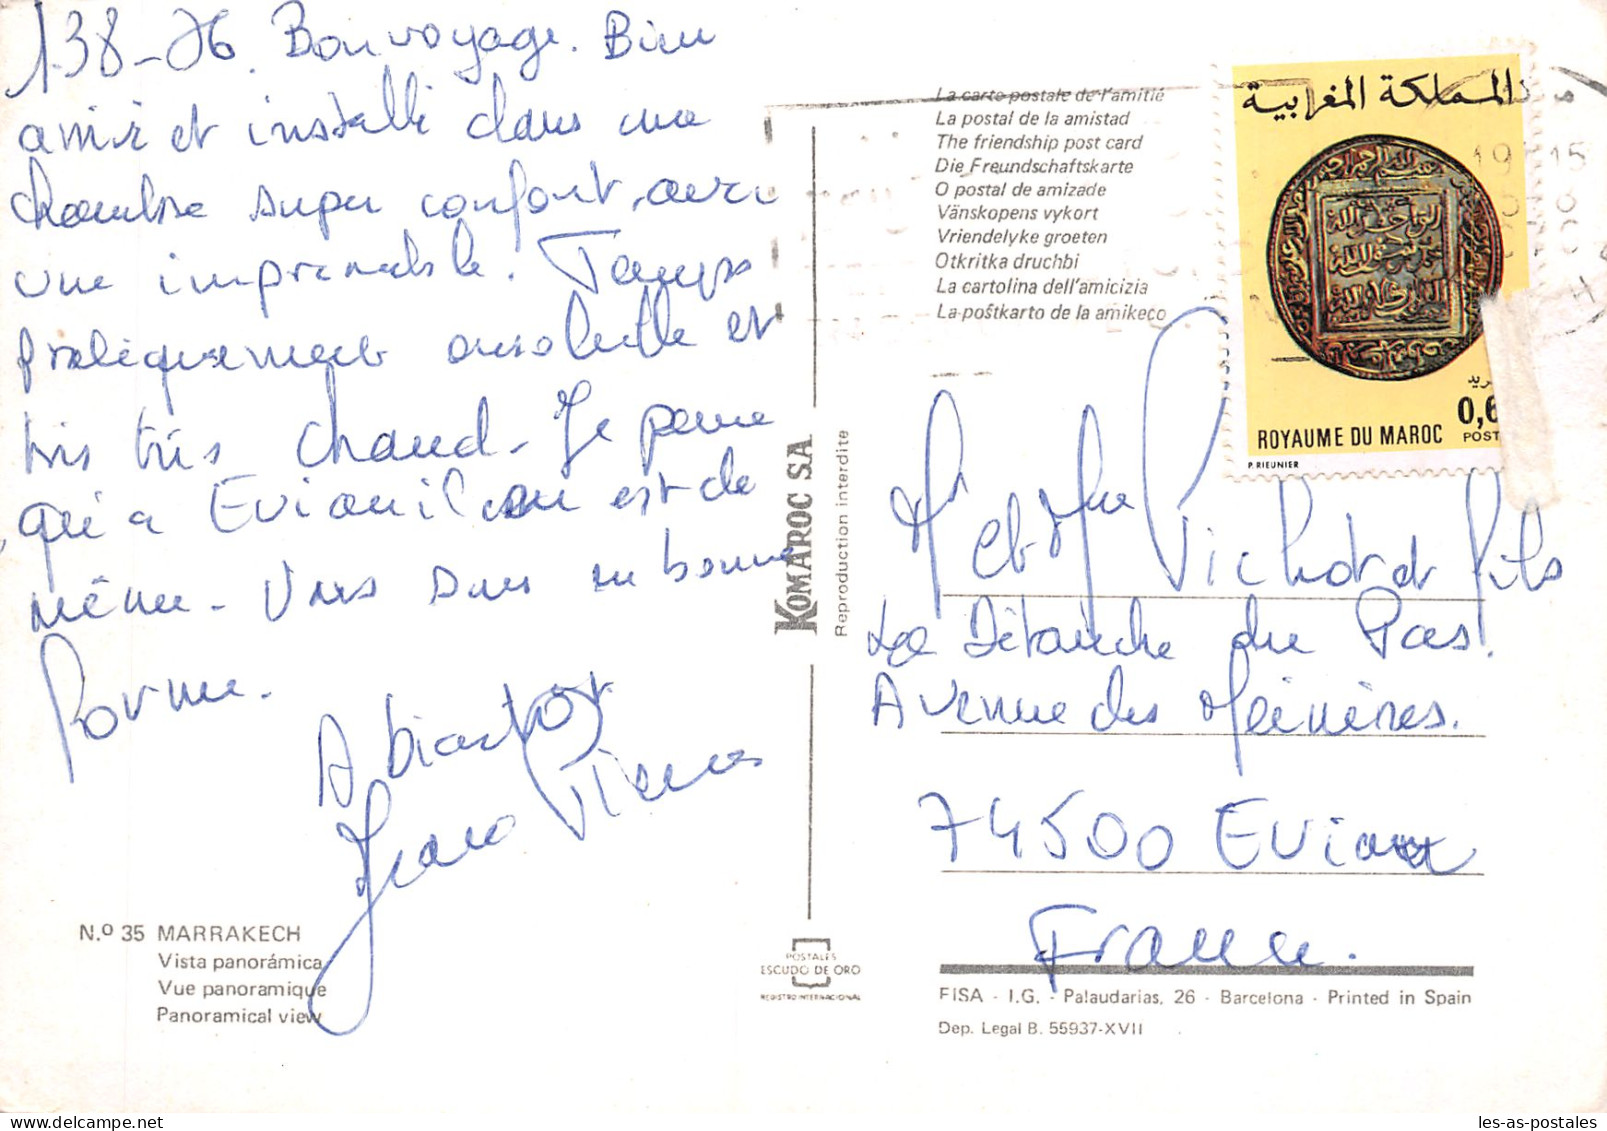 138-76. Bon voyage. Bien
arrivé et installé dans une
chambre super confort, avec
vue imprenable. Temps
pratiquement ensoleillé et
très très chaud. Je pense
qu'a Evian il en est de
même. Vous sous en bonne
forme.
A bientôt
Jean Pierre
N.º 35 MARRAKECH
Vista panorámica
Vue panoramique
Panoramical view
KOMAROC S.A
Reproduction interdite
POSTALES
ESCUDO DE ORO
REGISTRO INTERNACIONAL
La carte postale de l'amitié
La postal de la amistad
The friendship post card
Die Freundschaftskarte
O postal de amizade
Vänskopens vykort
Vriendelyke groeten
Otkritka druchbi
La cartolina dell'amicizia
La poŝtkarto de la amikeco
المملكة المغربية
0,6
ROYAUME DU MAROC POST
P. RIEUNIER
Mr et Mme Pichot et fils
La Détanche du Pas.
Avenue des Mémières.
74500 Evian
France.
FISA - I.G. - Palaudarias, 26 - Barcelona - Printed in Spain
Dep. Legal B. 55937-XVII
les-as-postales